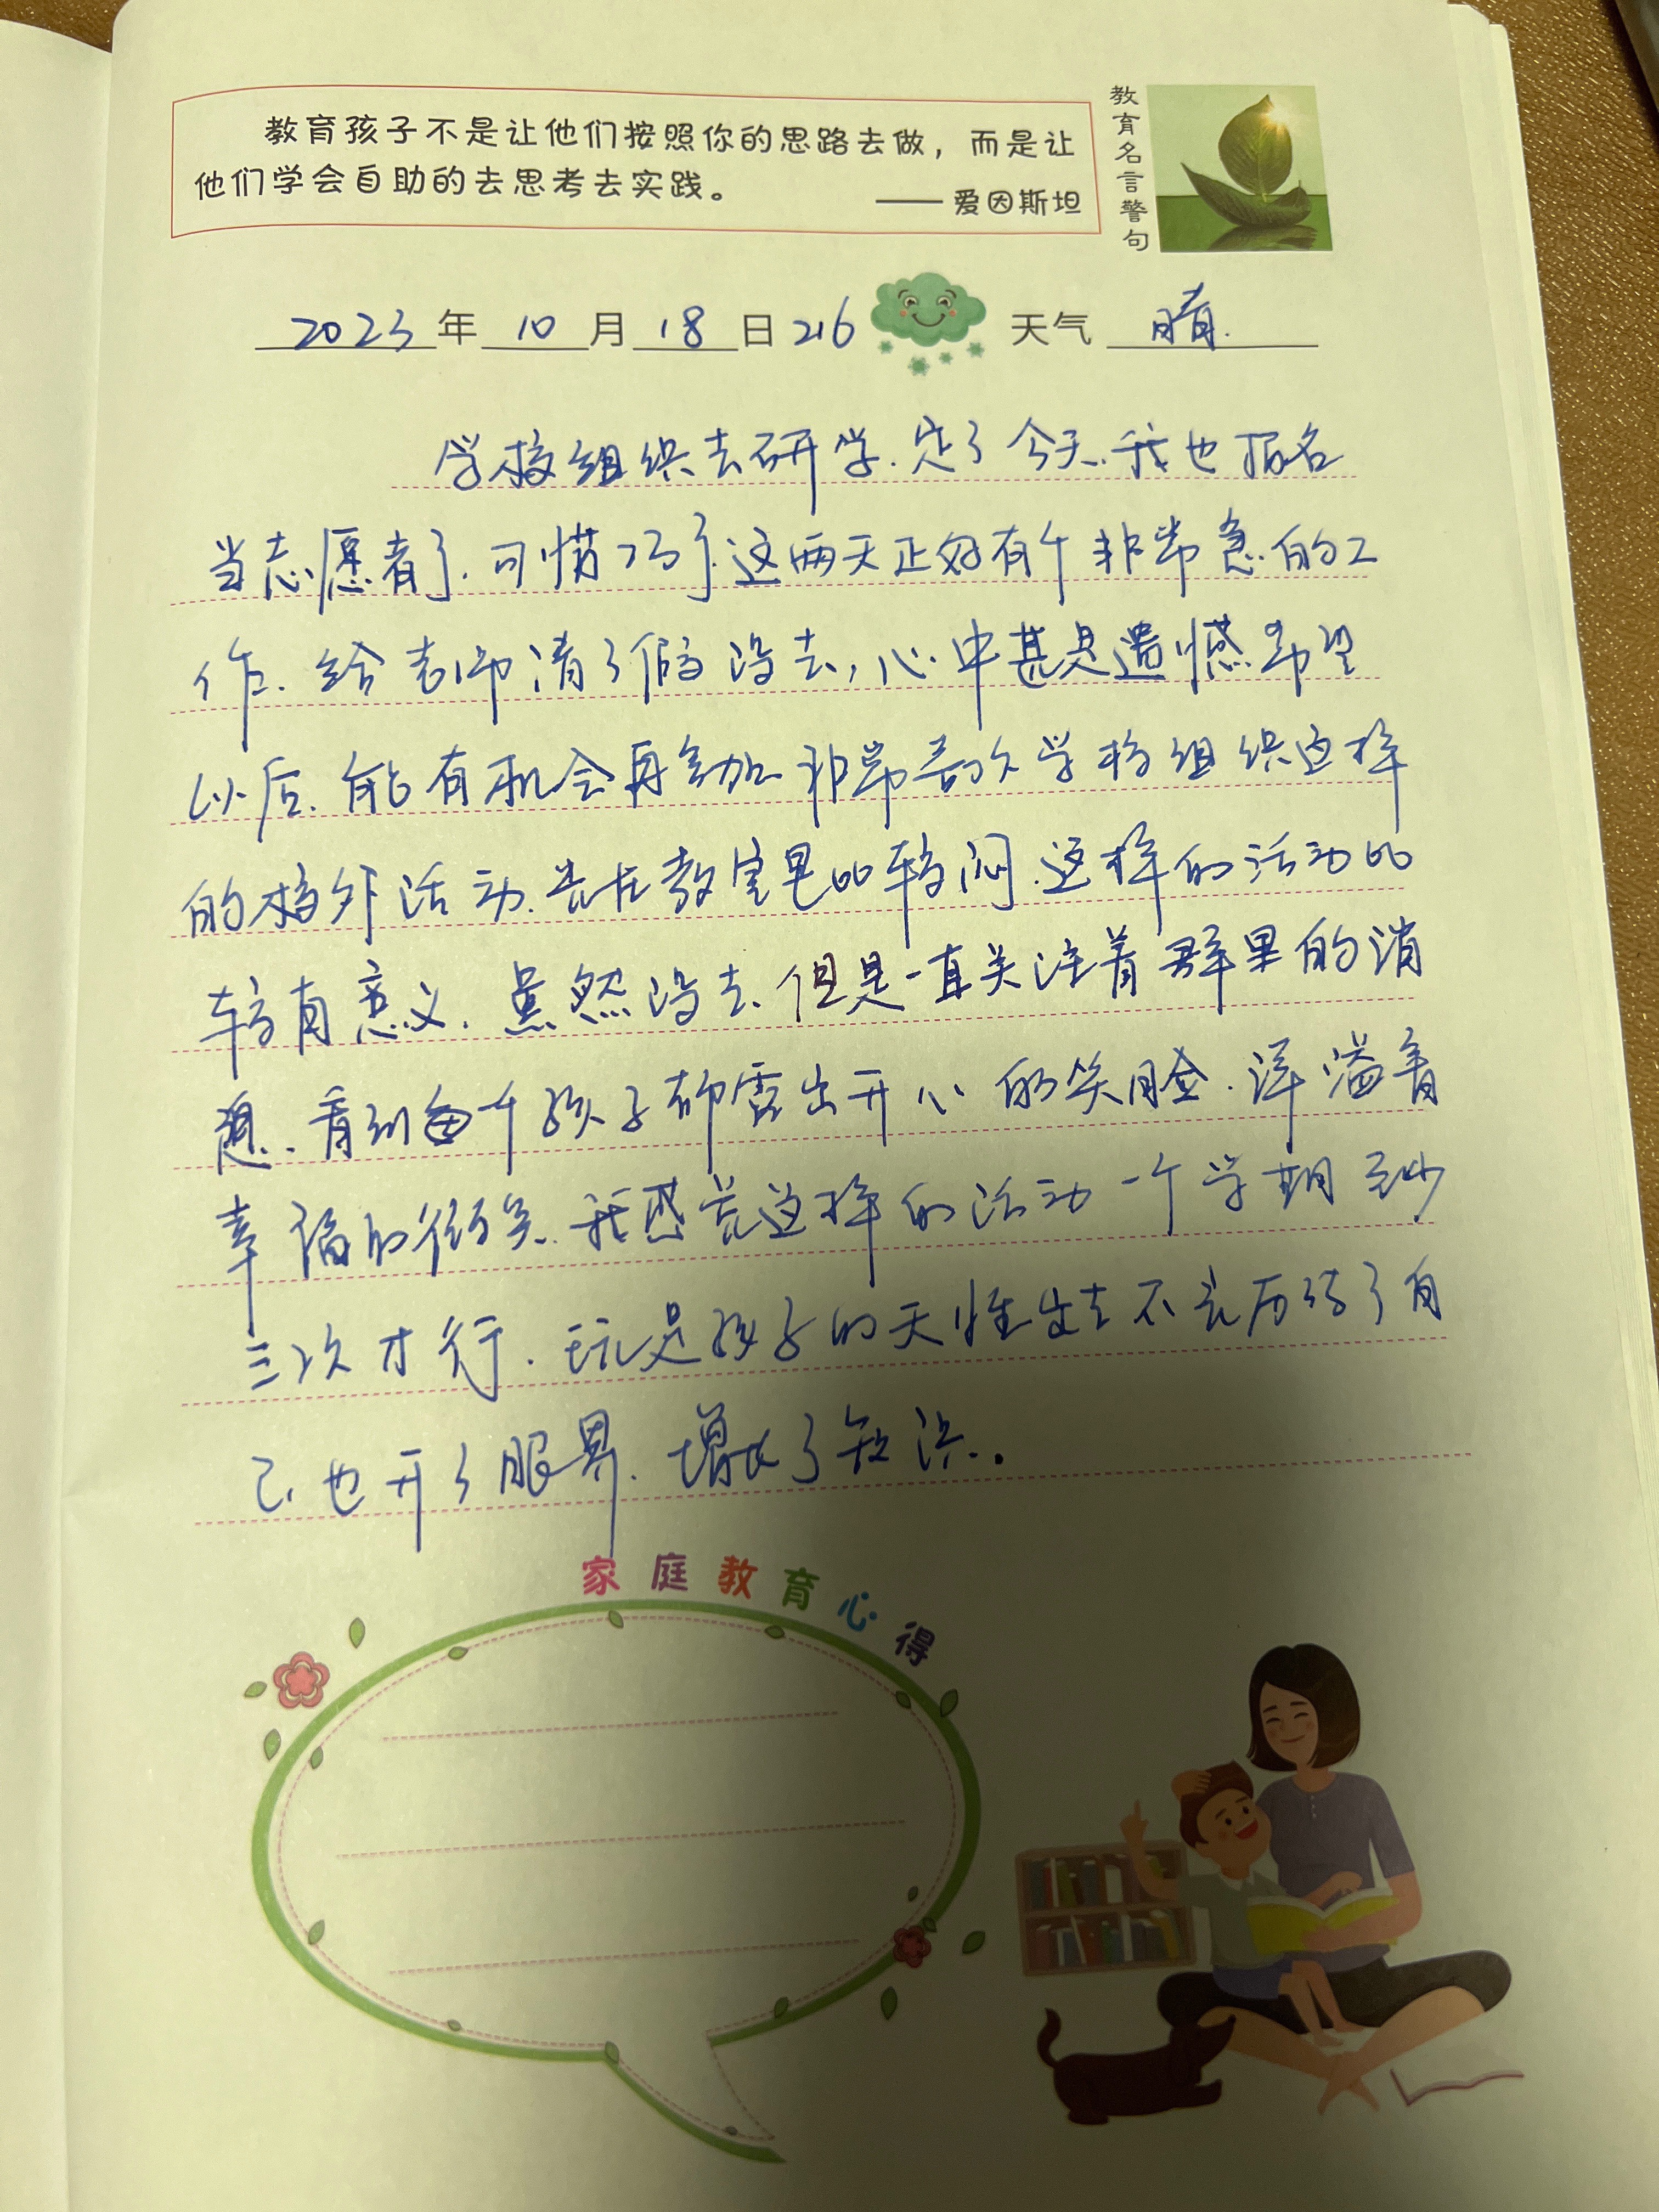 教育孩子不是让他们按照你的思路去做，而是让
他们学会自助的去思考去实践。
——爱因斯坦
教育名言警句
2023年10月18日 216 天气 晴.
学校组织去研学.定了今天.我也报名
当志愿者了.可惜巧了.这两天正好有个非常急的工
作.给老师请了假没去,心中甚是遗憾.希望
以后.能有机会再参加.非常喜欢学校组织这样
的校外活动.老在教室里比较闷.这样的活动比
较有意义.虽然没去.但是一直关注着群里的消
息.看到每个孩子都露出开心的笑脸.洋溢着
幸福的微笑.我感觉这样的活动一个学期至少
三次才行.玩是孩子的天性出去不光历练了自
己也开了眼界.增长了知识.
家庭教育心得